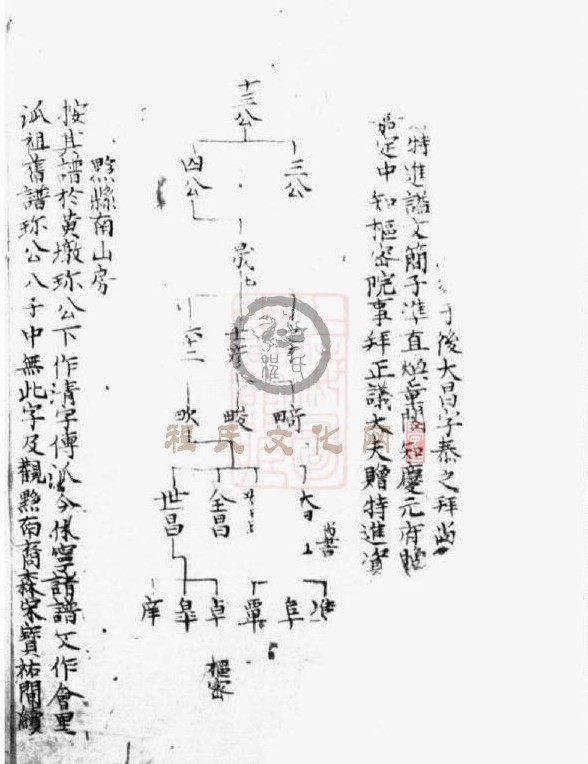 于後大昌字泰之拜尚
特進謚文簡子準直煥章閣知慶元府贈
嘉定中知樞密院事拜正議大夫贈特進資
十三公
三公
四公
畸
畯
畎
大昌
尚書
全昌
世昌
準
阜
覃
卓
皐
庠
樞密
黟縣南山房
按其譜於黃墩珎公下作清字傳派今休寧諸譜文作會里
派祖舊譜珎公八子中無此字及觀黟南裔森宋寳祐間續
程氏文化网